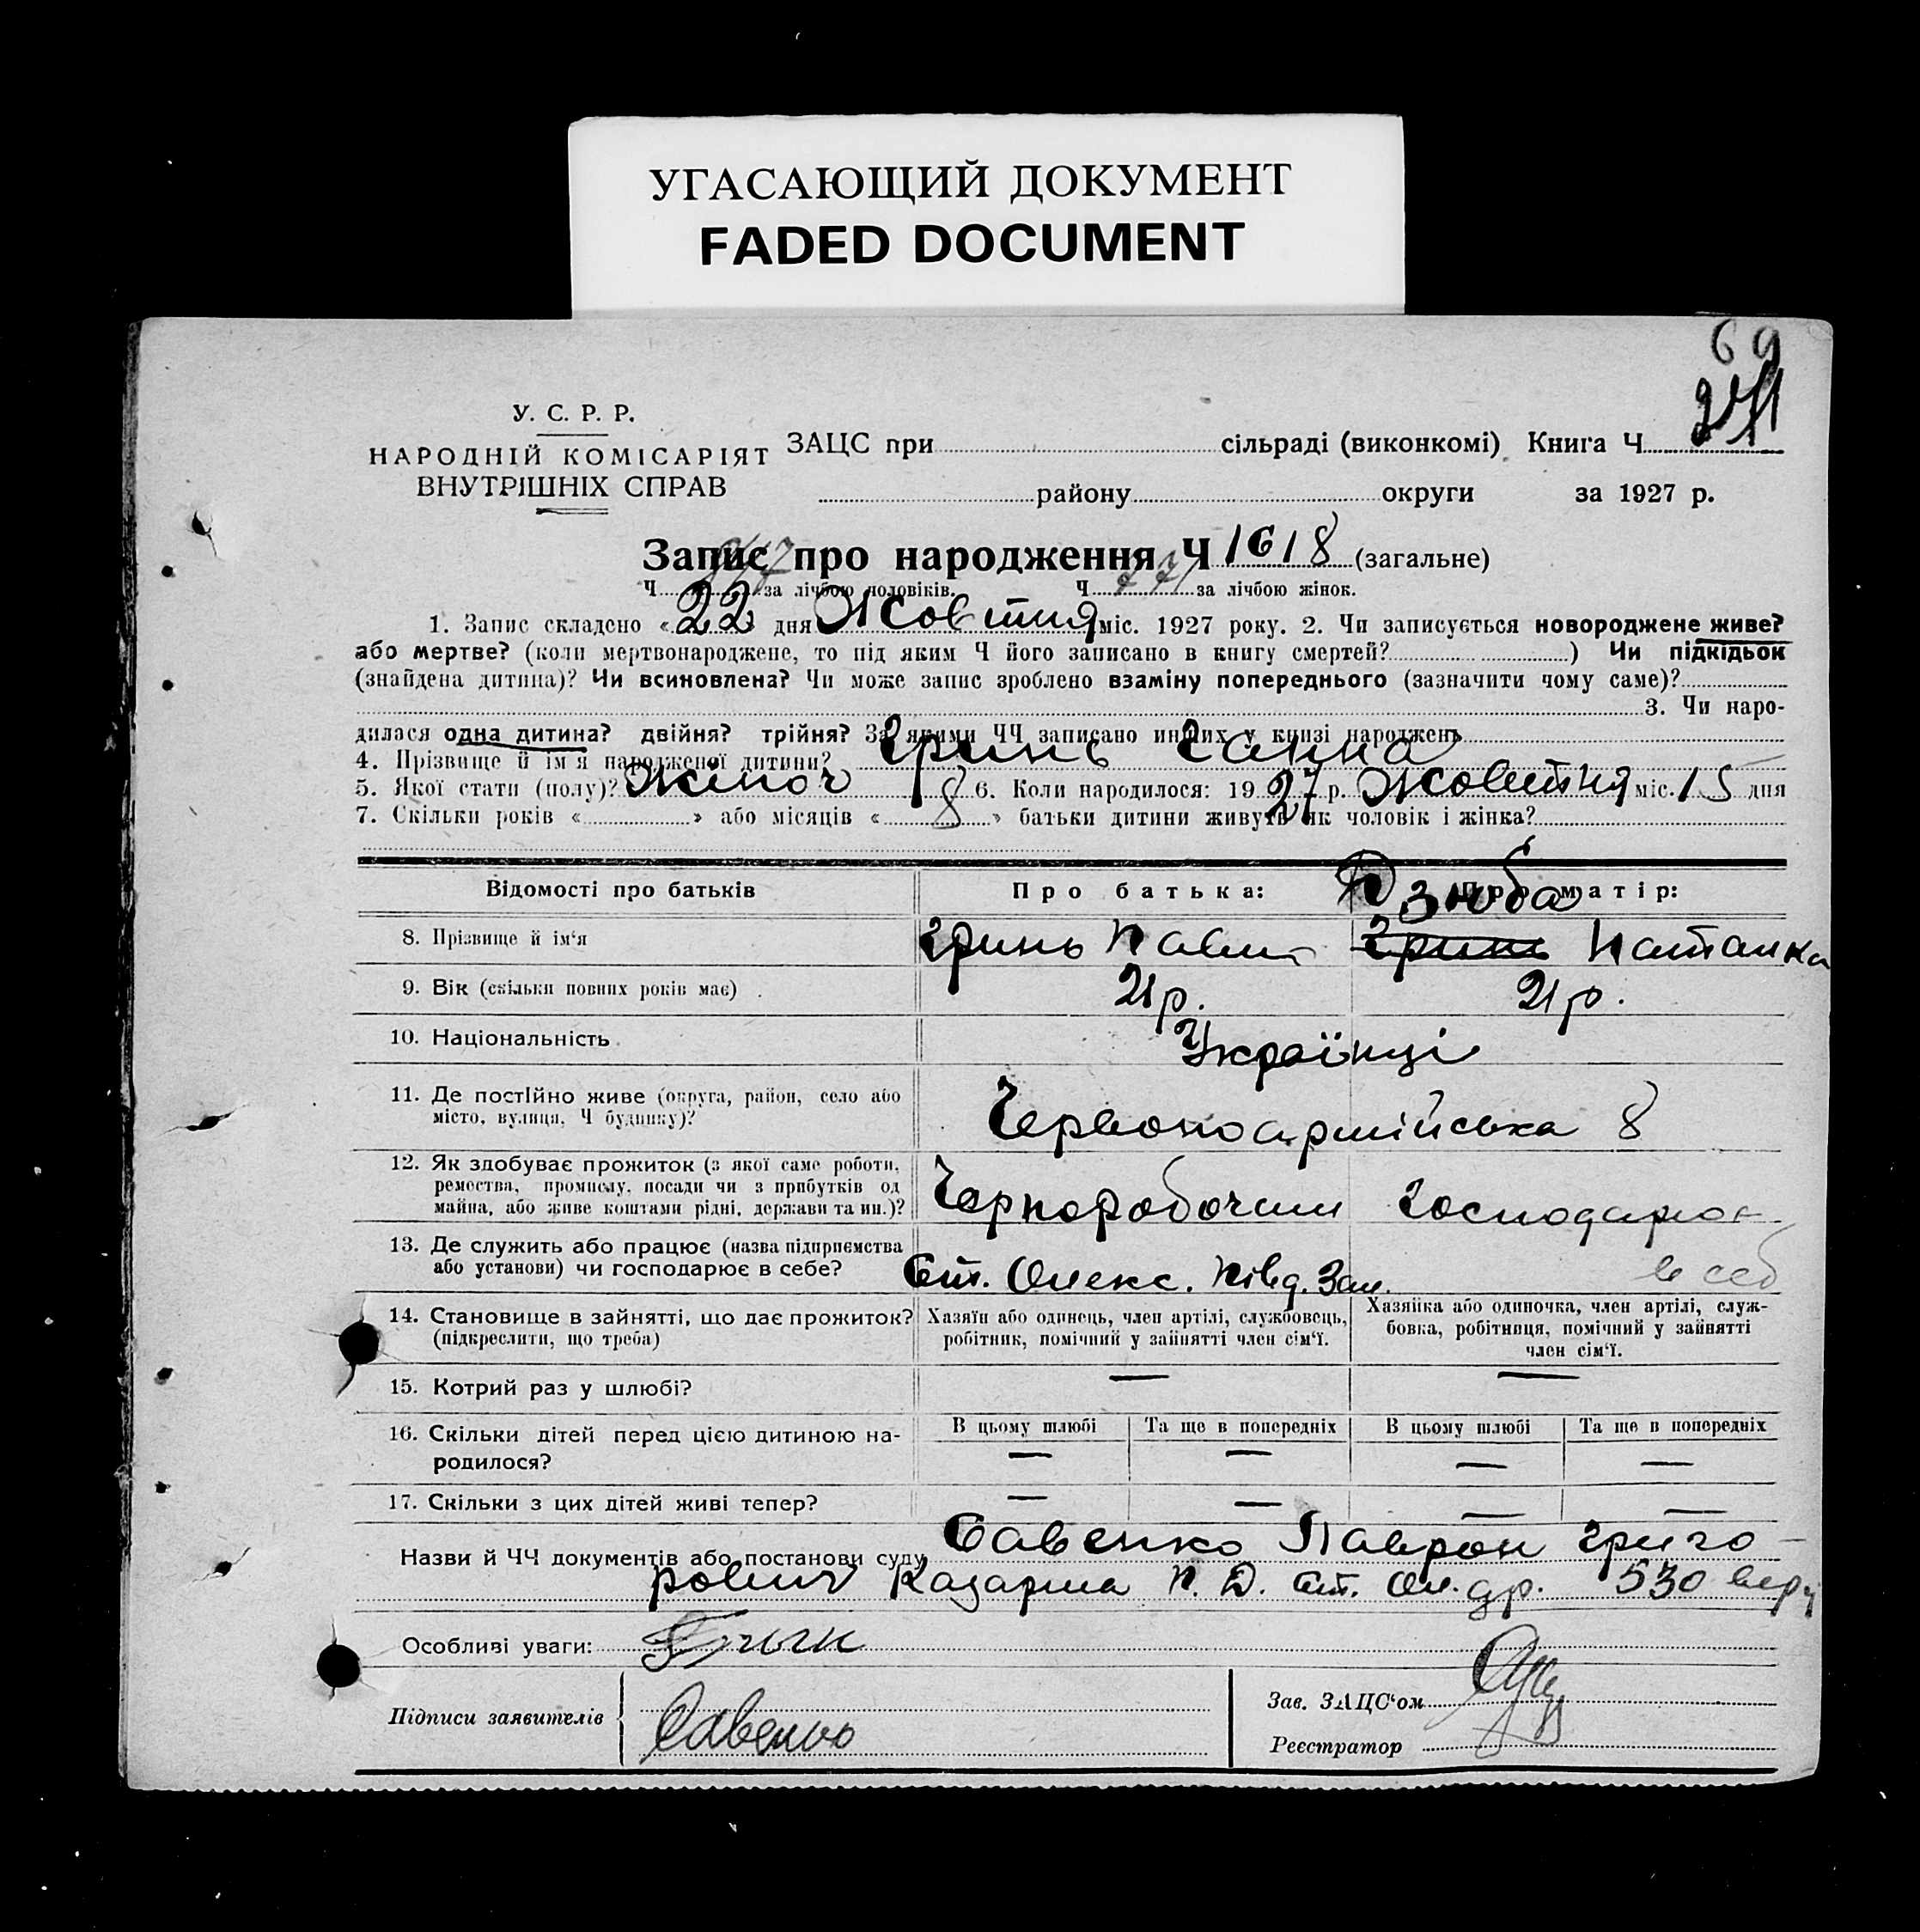 УГАСАЮЩИЙ ДОКУМЕНТ
FADED DOCUMENT
69
У. С. Р. Р.
НАРОДНІЙ КОМІСАРІЯТ
ВНУТРІШНІХ СПРАВ
ЗАЦС при сільраді (виконкомі) Книга Ч
району округи за 1927 р.
Запис про народження Ч 1618 (загальне)
Ч за лічбою чоловіків. Ч за лічбою жінок.
1. Запис складено «22» дня Жовтня міс. 1927 року. 2. Чи записується новороджене живе?
або мертве? (коли мертвонароджене, то під яким Ч його записано в книгу смертей? ) Чи підкідьок
(знайдена дитина)? Чи всиновлена? Чи може запис зроблено взаміну попереднього (зазначити чому саме)?
3. Чи наро-
дилася одна дитина? двійня? трійня? За якими ЧЧ записано инших у книзі народжень
4. Прізвище й ім'я народженої дитини? Гринь Ганна
5. Якої стати (полу)? Жіноч 6. Коли народилося: 1927 р. Жовтня міс. 15 дня
7. Скільки років « » або місяців « 8 » батьки дитини живуть як чоловік і жінка?
Відомості про батьків Про батька: Про матір:
Дзюба
8. Прізвище й ім'я Гринь Павло Гринь Наталка
9. Вік (скільки повних років має) 21 р. 21 р.
10. Національність Українці
11. Де постійно живе (округа, район, село або
місто, вулиця, Ч будинку)? Червоноармійська 8
12. Як здобуває прожиток (з якої саме роботи,
ремества, промислу, посади чи з прибутків од
майна, або живе коштами рідні, держави та ин.)? Чорноробочим Господарює
13. Де служить або працює (назва підприємства
або установи) чи господарює в себе? Ст. Олекс. Півд. Зал. в себ
14. Становище в зайнятті, що дає прожиток?
(підкреслити, що треба)
Хазяїн або одинець, член артілі, службовець,
робітник, помічний у зайнятті член сім'ї.
Хазяйка або одиночка, член артілі, служ-
бовка, робітниця, помічний у зайнятті
член сім'ї.
15. Котрий раз у шлюбі? — —
16. Скільки дітей перед цією дитиною на-
родилося?
В цьому шлюбі Та ще в попередніх В цьому шлюбі Та ще в попередніх
— — — —
17. Скільки з цих дітей живі тепер? — — — —
Назви й ЧЧ документів або постанови суду Савенко Лаврон Григо-
рович Казарма П. Д. ст. Ол. др. 530 вер
Особливі уваги:
Підписи заявителів Савенко
Зав. ЗАЦС'ом
Реєстратор